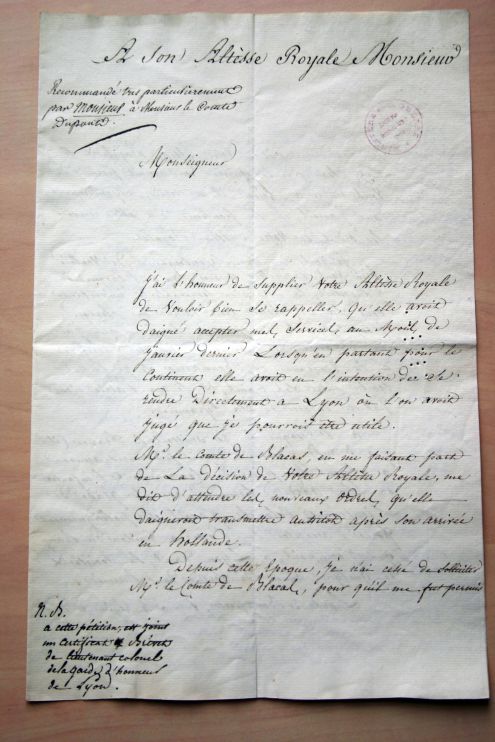 A Son Altèsse Royale Monsieur
Recommandé très particulièrement
par Monsieur à Monsieur le Comte
Dupont.
Monseigneur
j'ai l'honneur de Supplier Votre Altèsse Royale
de Vouloir bien se rappeller, Qu'elle avoit
daigné accepter mes Services, au Mois de
janvier dernier Lorsqu'en partant pour le
Continent elle avoit eu l'intention de se
rendre Directement a Lyon où l'on avoit
jugé que je pourrois être utile.
Mr. le Comte de Blacas, en me faisant part
de La décision de Votre Altèsse Royale, me
dit d'attendre les nouveaux Ordres, qu'elle
daigneroit transmettre aussitôt après son arrivée
en hollande.
Depuis cette Epoque, je n'ai cessé de solliciter
Mr. le Comte de Blacas, pour qu'il me fut permis
N. B.
a cette pétition, est joint
un Certificat Brevet
de lieutenant colonel
de la Garde d'honneur
de Lyon.